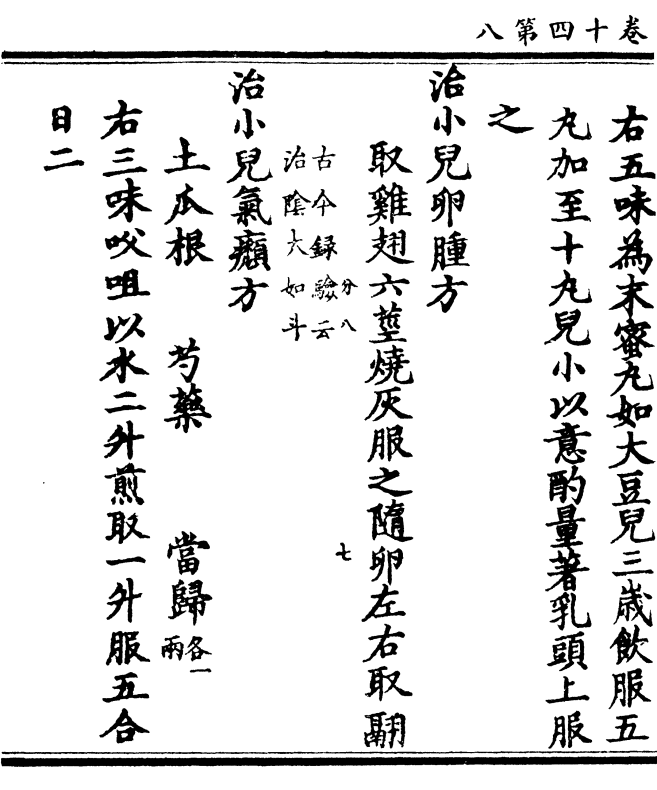 卷十四第八
右五味為末蜜丸如大豆兒三歲飲服五
丸加至十丸兒小以意酌量著乳頭上服
之
治小兒卵腫方
取雞翅六莖燒灰服之隨卵左右取翮
分八
七
古今録驗云
治陰大如斗
治小兒氣癩方
土瓜根 芍藥 當歸各一兩
右三味㕮咀以水二升煎取一升服五合
日二